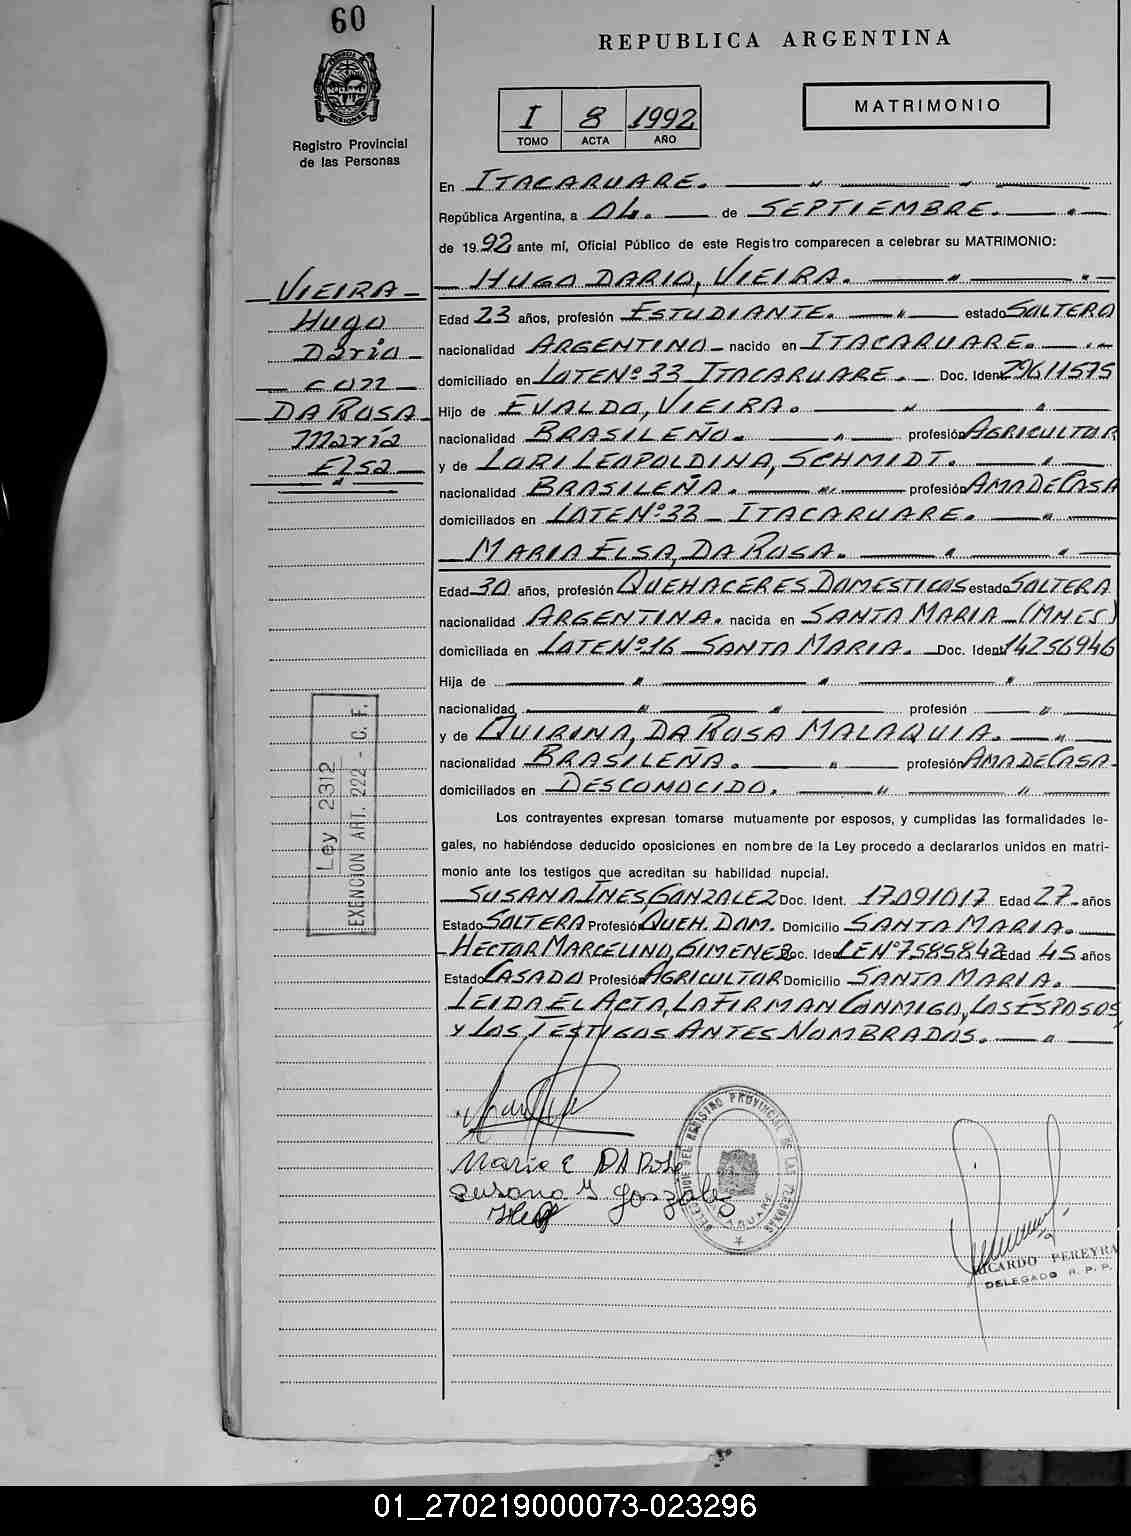 60
REPUBLICA ARGENTINA
MATRIMONIO
I 8 1992
TOMO ACTA AÑO
Registro Provincial
de las Personas
En ITACARUARE.
República Argentina, a 04. de SEPTIEMBRE.
de 1992 ante mí, Oficial Público de este Registro comparecen a celebrar su MATRIMONIO:
HUGO DARIO, VIEIRA.
VIEIRA
Hugo
Dario
con
DA ROSA
María
Elsa
Edad 23 años, profesión ESTUDIANTE. estado SOLTERO
nacionalidad ARGENTINO nacido en ITACARUARE.
domiciliado en LOTE Nº 33 ITACARUARE. Doc. Ident. 20611575
Hijo de EVALDO, VIEIRA.
nacionalidad BRASILEÑO. profesión AGRICULTOR
y de LORI LEOPOLDINA, SCHMIDT.
nacionalidad BRASILEÑA. profesión AMA DE CASA
domiciliados en LOTE Nº 33 - ITACARUARE.
MARIA ELSA, DA ROSA.
Edad 30 años, profesión QUEHACERES DOMESTICOS estado SOLTERA
nacionalidad ARGENTINA. nacida en SANTA MARIA (MNES)
domiciliada en LOTE Nº 16 SANTA MARIA. Doc. Ident. 14256946
Hija de
nacionalidad profesión
y de QUIRINA, DA ROSA MALAQUIA.
nacionalidad BRASILEÑA. profesión AMA DE CASA
domiciliados en DESCONOCIDO.
Ley 2312
EXENCION ART. 222 - C. F.
Los contrayentes expresan tomarse mutuamente por esposos, y cumplidas las formalidades le-
gales, no habiéndose deducido oposiciones en nombre de la Ley procedo a declararlos unidos en matri-
monio ante los testigos que acreditan su habilidad nupcial.
SUSANA INES, GONZALEZ Doc. Ident. 17.091017 Edad 27 años
Estado SOLTERA Profesión QUEH. DOM. Domicilio SANTA MARIA.
HECTOR MARCELINO, GIMENEZ Doc. Ident. LE Nº 7585842 Edad 45 años
Estado CASADO Profesión AGRICULTOR Domicilio SANTA MARIA.
LEIDA EL ACTA, LA FIRMAN CONMIGO, LOS ESPOSOS,
Y LOS TESTIGOS ANTES NOMBRADOS.
Maria E DA Rosa
Susana I Gonzalez
DEL REGISTRO PROVINCIAL DE LAS PERSONAS
RICARDO PEREYRA
DELEGADO R. P. P.
01_270219000073-023296